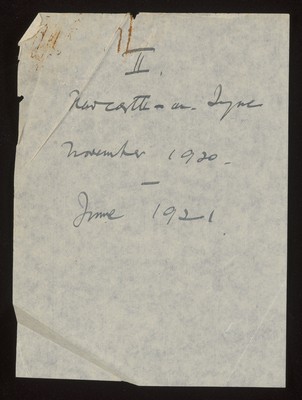 II.
Newcastle-on-Tyne
November 1920.
—
June 1921.